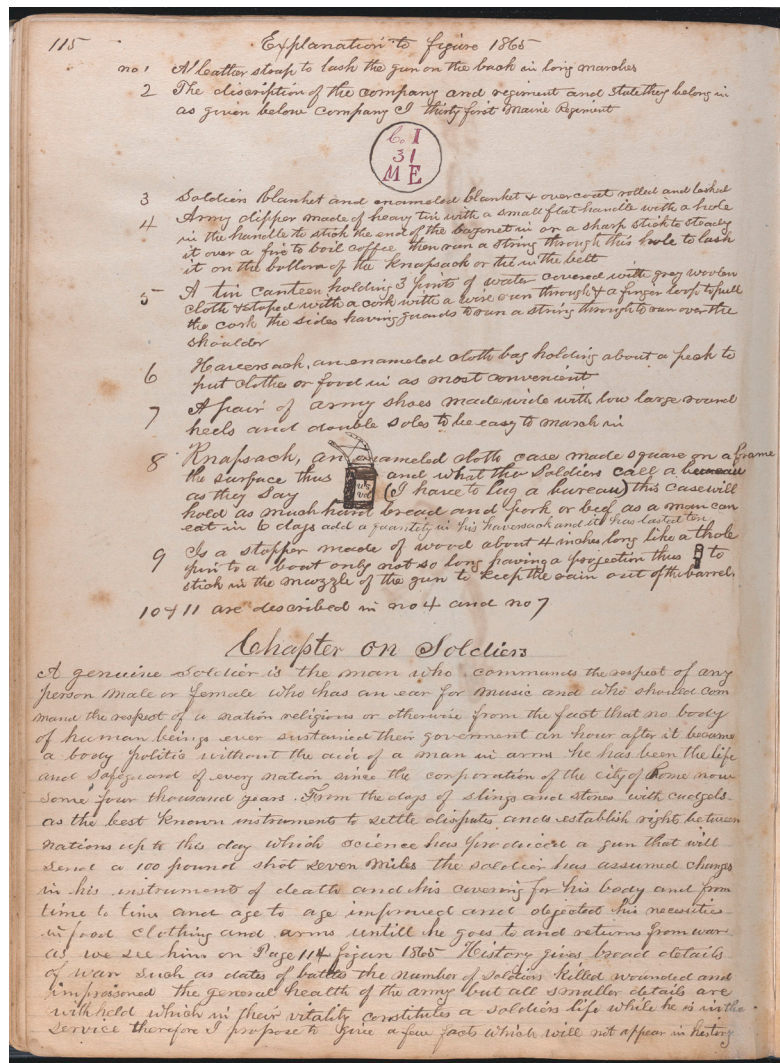 115 Explanation to figure 1865
no 1 A leather strap to lash the gun on the back in long marches
2 The discription of the company and regiment and state they belong in
as given below company I thirty first Maine Regiment
Co I
31
ME
3 Soldiers blanket and enameled blanket & overcoat rolled and lashed
4 Army dipper made of heavy tin with a small flat handle with a hole
in the handle to stick the end of the bayonet in or a sharp stick to steady
it over a fire to boil coffee then run a string through this hole to lash
it on the bottom of the knapsack or tie in the belt
5 A tin canteen holding 3 pints of water covered with grey woolen
cloth & stoped with a cork with a wire run through & a finger loop to pull
the cork the sides having guards to run a string through to run over the
shoulder
6 Haversack, an enameled cloth bag holding about a peck to
put clothes or food in as most convenient
7 A pair of army shoes made wide with low large round
heels and double soles to be easy to march in
8 Knapsack, an enameled cloth case made square on a frame
the surface thus and what the Soldiers call a bureau
as they say (I have to lug a bureau) this case will
hold as much hard bread and pork or beef as a man can
eat in 6 days add a quantity in his haversack and it has lasted ten
9 Is a stopper made of wood about 4 inches long like a thole
pin to a boat only not so long having a projection thus to
stick in the muzzle of the gun to keep the rain out of the barrel.
10 & 11 are described in no 4 and no 7
Chapter on Soldiers
A genuine Soldier is the man who commands the respect of any
person male or female who has an ear for music and who should com
mand the respect of a nation religious or otherwise from the fact that no body
of human beings ever sustained their goverment an hour after it became
a body politic without the aid of a man in arms he has been the life
and safeguard of every nation since the corporation of the city of Rome now
some four thousand years. From the days of slings and stones with cudgels
as the best known instruments to settle disputes and establish right between
nations up to this day which science has produced a gun that will
send a 100 pound shot seven miles the soldier has assumed changes
in his instruments of death and his covering for his body and from
time to time and age to age improved and dejected his necessities
in food clothing and arms untill he goes to and returns from war
as we see him on Page 114 figure 1865 History gives broad details
of war such as dates of battles the number of soldiers killed wounded and
imprisoned the general health of the army but all smaller details are
withheld which in their vitality constitutes a soldiers life while he is in the
service therefore I propose to give a few facts which will not appear in history